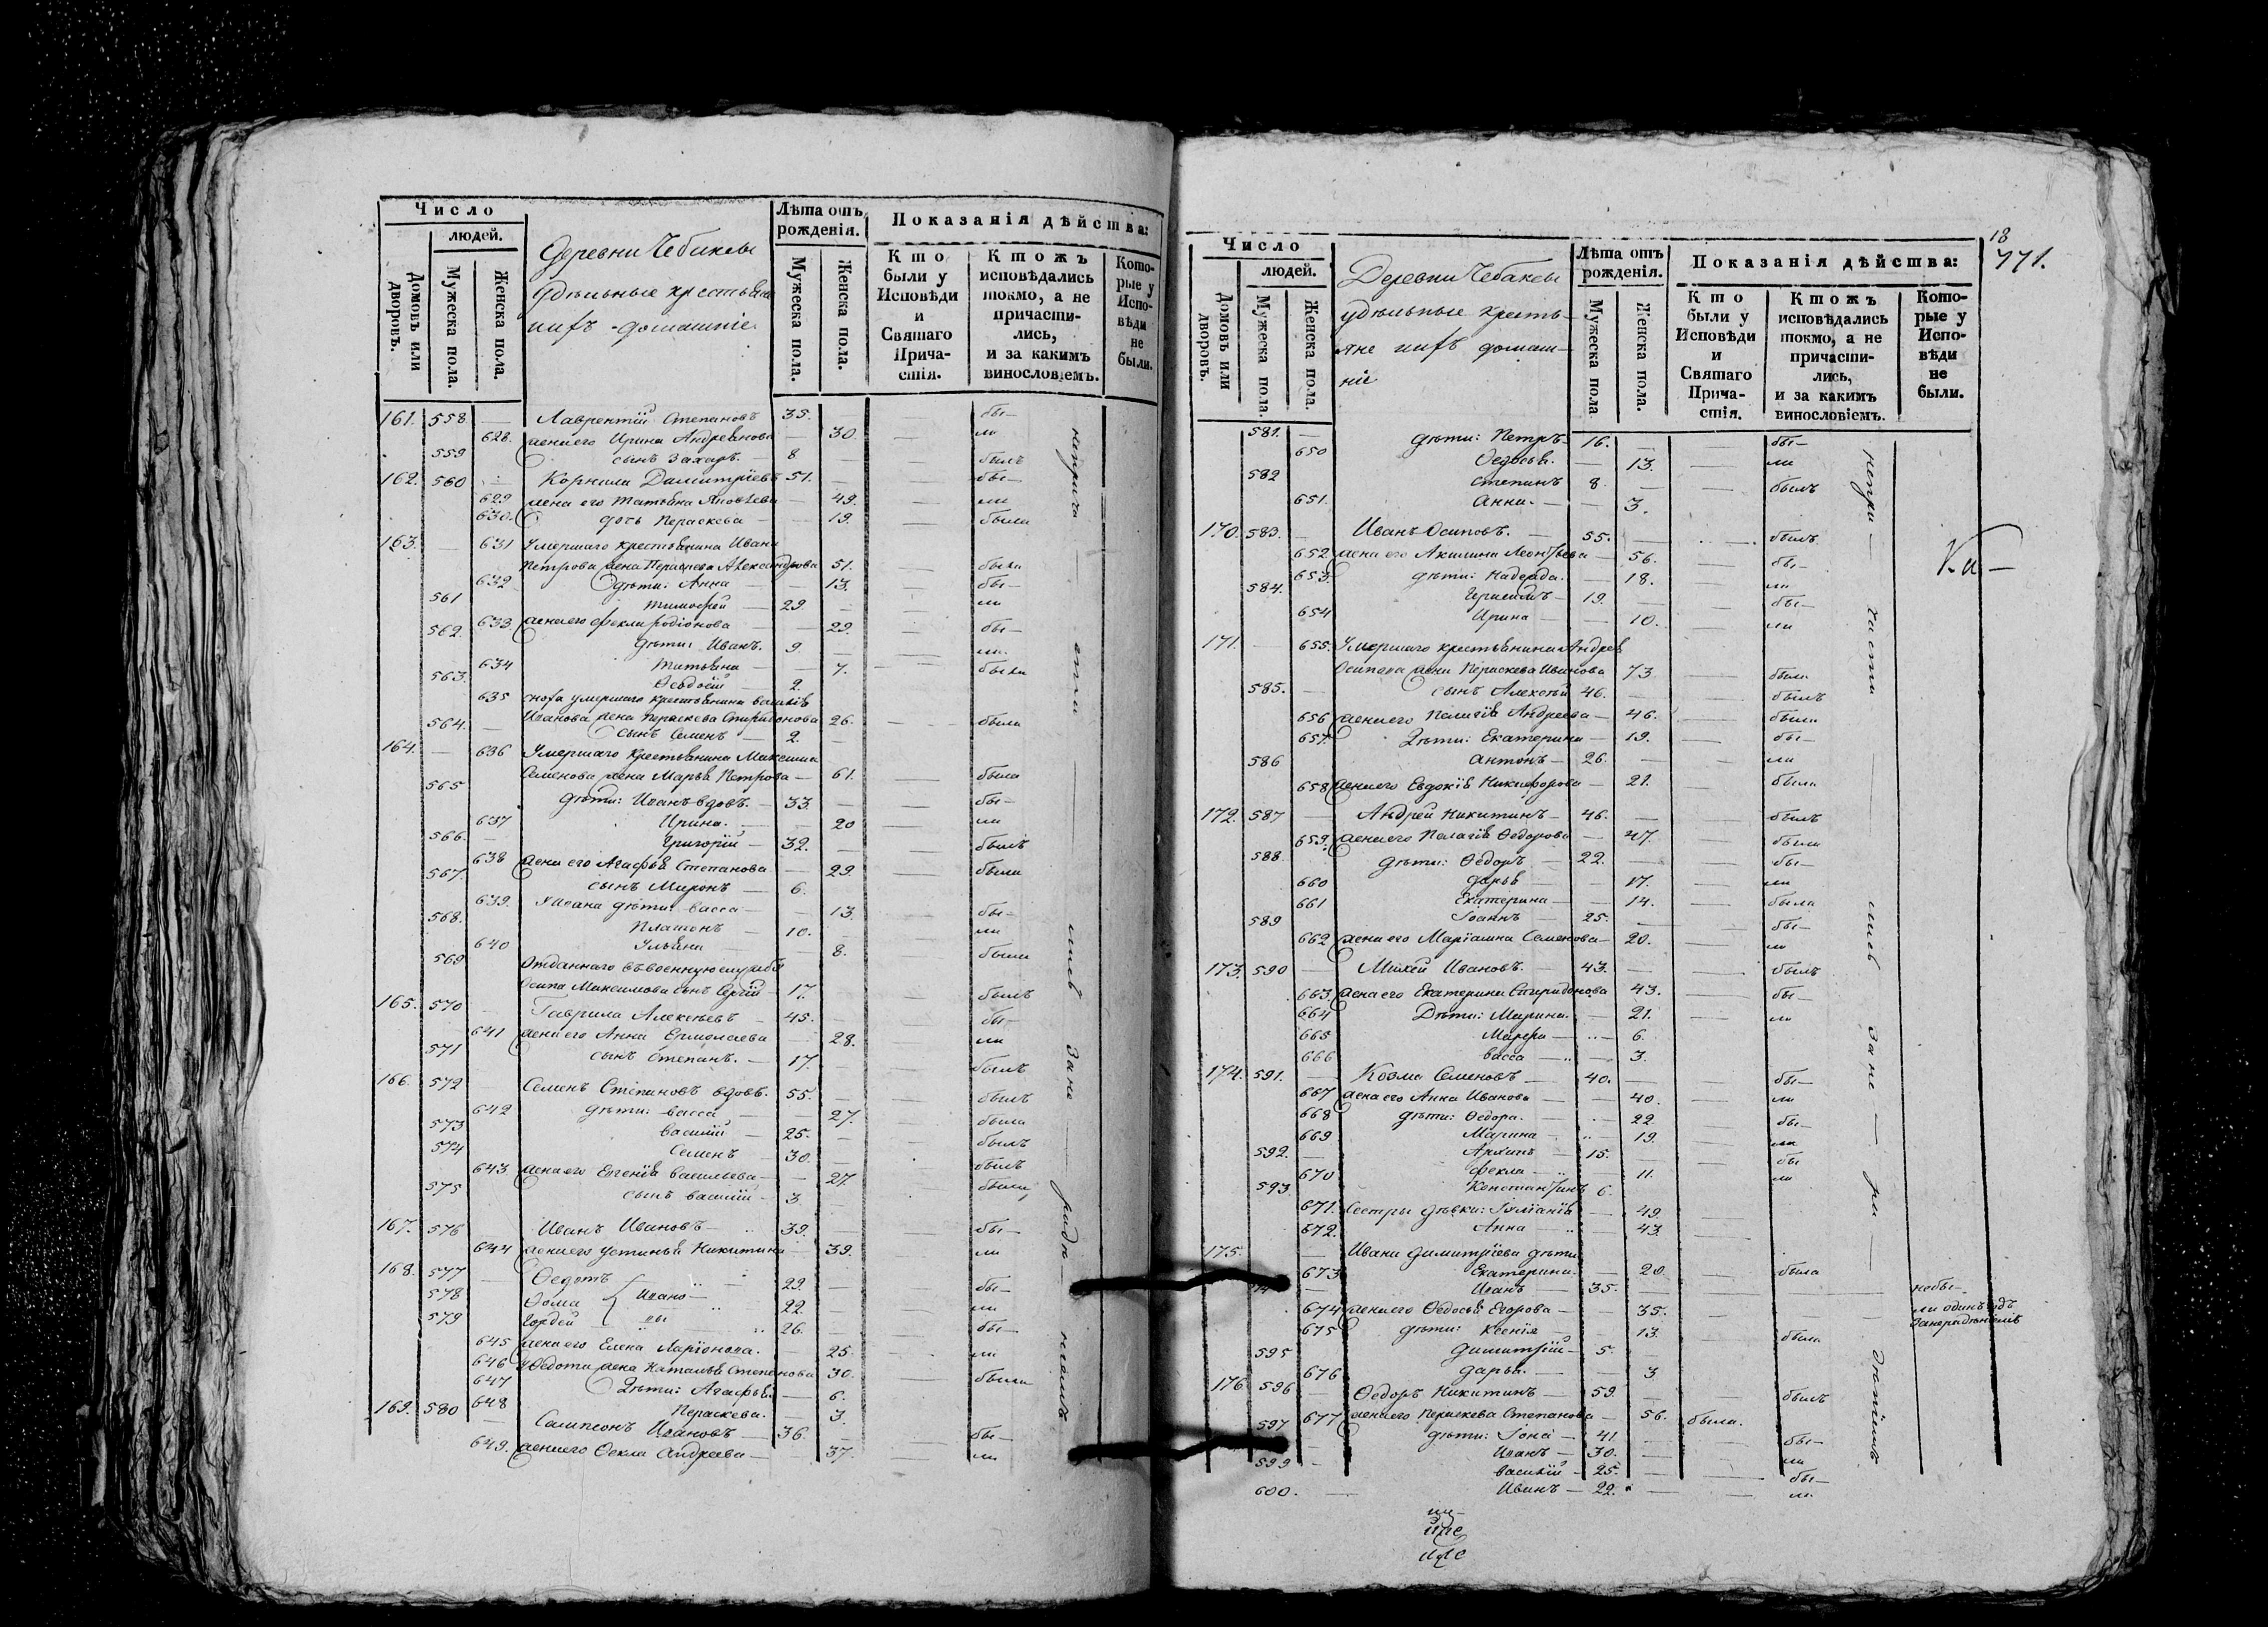 Число
людей.
Домовъ или дворовъ.
Мужеска пола.
Женска пола.
Деревни Чебаковы
удѣльные крестьяне
ихъ домашніе
Лѣта отъ рожденія.
Мужеска пола.
Женска пола.
Показанія дѣйства:
Кто были у Исповѣди и Святаго Причастія.
Ктожъ исповѣдались токмо, а не причастились, и за какимъ винословіемъ.
Которые у Исповѣди не были.
161. 558. — Лаврентій Степановъ 35. — бы-
628. жена его Ирина Андреянова — 30. — ли
559 сынъ Захаръ. — 8 — былъ
162. 560 Корнила Димитріевъ 51. — бы-
629 жена его Татьяна Яковлева — 49. — ли
630. дочь Параскева — 19. — была
163. — 631 Умершаго крестьянина Ивана
Петрова жена Параскева Александрова 51. — была
632 дѣти: Анна — 13. — бы-
561 Тимофей — 29 — ли
633 жена его Фекла Родіонова — 29. — бы-
562. дѣти: Иванъ. 9. — ли
634 Татьяна — 7. — была
563. Ѳедосій — 2.
635 сноха умершаго крестьянина Василія
Иванова жена Параскева Спиридонова 26. — была
564. — сынъ Семенъ — 2.
164. — 636 Умершаго крестьянина Максима
Семенова жена Марья Петрова — 61. — была
565 дѣти: Иванъ вдовъ. — 33. — бы-
637 Ирина. — 20 — ли
566. — Григорій — 32. — былъ
638 жена его Агафья Степанова — 29 — была
567. сынъ Миронъ — 6.
639. У Ивана дѣти: Васса — 13. — бы-
568. Платонъ — 10. — ли
640 Ульяна 8. — была
569 Отданнаго въ военную службу
Осипа Максимова сынъ Сергій — 17. — былъ
165. 570 — Гаврила Алексѣевъ — 45. — бы-
641 жена его Анна Ермолаева — 28. — ли
571 сынъ Степанъ. — 17. — былъ
166. 572 — Семенъ Степановъ вдовъ. 55. — былъ
642 дѣти: Васса — 27. — была
573 Василій — 25. — былъ
574 Семенъ — 30. — былъ
643 жена его Евгенія Васильева — 27. — была
575 сынъ Василій — 3.
167. 576 Иванъ Ивановъ — 39. — бы-
644 жена его Устинья Никитина — 39. — ли
168. 577 — Ѳедотъ 29. — бы-
578 Ѳома Ивано- 22. — ли
579 Гордей вы 26. — бы-
645 жена его Елена Ларіонова. — 25. — ли
646 У Ѳедота жена Наталья Степанова 30. — была
647 Дѣти: Агафья — 6.
648 Параскева. — 3.
169. 580 — Сампсонъ Ивановъ — 36. — бы-
649. жена его Ѳекла Андреева — 37. — ли
неприча — стли — шись за не — радѣ — ніемъ
18
771.
Число
людей.
Домовъ или дворовъ.
Мужеска пола.
Женска пола.
Деревни Чебаковы
удѣльные кресть-
яне ихъ домаш-
ніе
Лѣта отъ рожденія.
Мужеска пола
Женска пола.
Показанія дѣйства:
Кто были у Исповѣди и Святаго Причастія.
Ктожъ исповѣдались токмо, а не причастились, и за какимъ винословіемъ.
Которые у Исповѣди не были.
581. — дѣти: Петръ — 16. — бы-
650 Ѳедосья. — 13. — ли
582 Степанъ 8. — былъ
651. Анна. — 3.
170. 583. — Иванъ Осиповъ. — 55. — былъ
652 жена его Акилина Леонтьева — 56. — бы-
653. дѣти: Надежда. — 18. — ли
584. Герасимъ — 19. — бы-
654 Ирина — 10. — ли
171. — 655. Умершаго крестьянина Андрея
Осипова жена Параскева Иванова 73 — была
585. — сынъ Алексѣй 46. — былъ
656 жена его Пелагія Андреева — 46. — была
657. Дѣти: Екатерина — 19. — бы-
586 Антонъ — 26. — ли
658 жена его Евдокія Никифорова — 21. — была
172. 587 — Андрей Никитинъ — 46. — былъ
659. жена его Пелагія Ѳедорова — 47. — была
588. дѣти: Ѳедоръ — 22. — бы-
660 Дарья — 17. — ли
661 Екатерина — 14. — была
589 Іоаннъ — 25. — бы-
662 жена его Маріамна Семенова — 20. — ли
173. 590 — Михей Ивановъ. — 43. — былъ
663. жена его Екатерина Спиридонова 43. — бы-
664 Дѣти: Марина. — 21. — ли
665 Марфа — 6.
666 Васса — 3.
174. 591. — Козма Семеновъ — 40. — бы-
667 жена его Анна Иванова — 40. — ли
668 дѣти: Ѳедора. — 22 — бы-
669 Марина — 19. — ли
592. — Архипъ — 15. — бы
670 Фекла — 11. — ли
593. Константинъ 6.
671. Сестры дѣвки: Іуліанія — 49.
672. Анна — 43.
175. — Ивана Димитріева дѣти
673 Екатерина. — 20. — была
Иванъ — 35. — небы-
674 жена его Ѳедосья Егорова — 35. — ли одинъ годъ
675 дѣти: Ксенія — 13. — была за нерадѣніемъ
595 Димитрій — 5.
676 Дарья. — 3
176 596 — Ѳедоръ Никитинъ — 59. — былъ
677 жена его Параскева Степанова — 56. была.
597 дѣти: Іона — 41. — бы-
Иванъ — 30. — ли
599 — Василій — 25. — бы-
600. — Иванъ — 22. — ли
непри — части — шись за не — ра — дѣніемъ